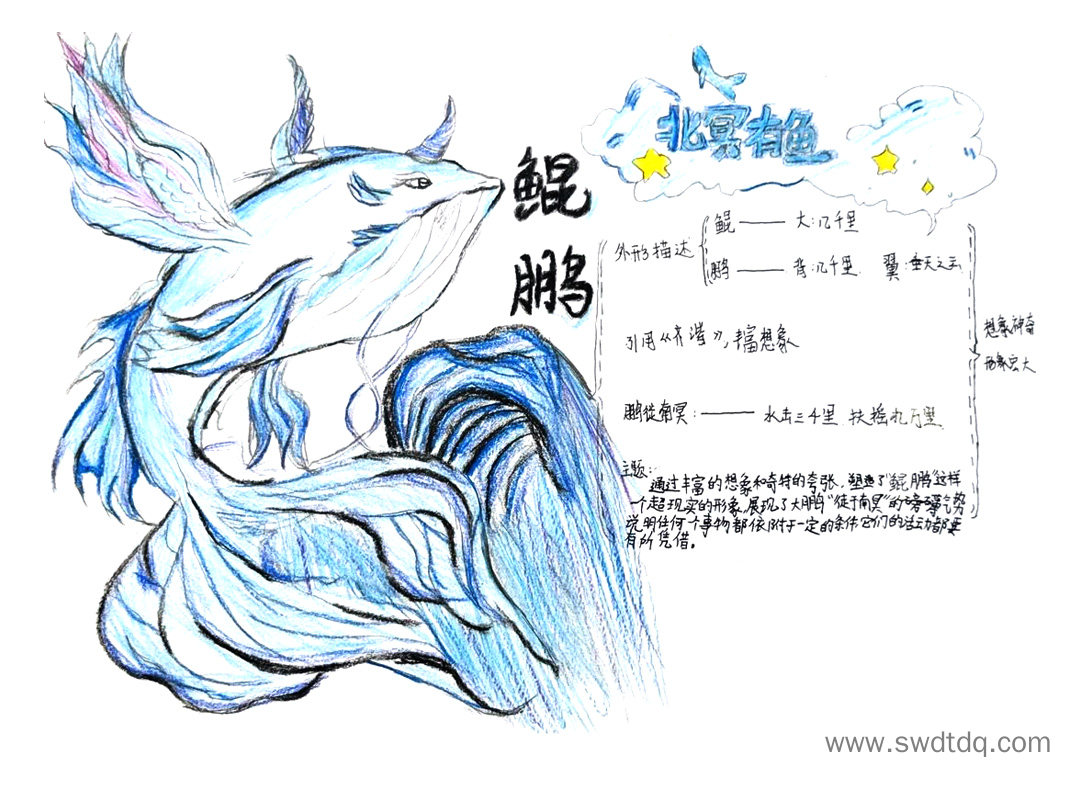 北冥有鱼
鲲
鹏
外形描述
鲲 —— 大:几千里
鹏 —— 背:几千里 翼:垂天之云
引用《齐谐》,丰富想象
鹏徙南冥: —— 水击三千里 扶摇九万里
想象神奇
形象宏大
主题:
通过丰富的想象和奇特的夸张,塑造了"鲲鹏"这样
一个超现实的形象,展现了大鹏"徙于南冥"的磅礴气势
说明任何个事物都依附于一定的条件它们的活动都要
有所凭借。
www.swdtdq.com